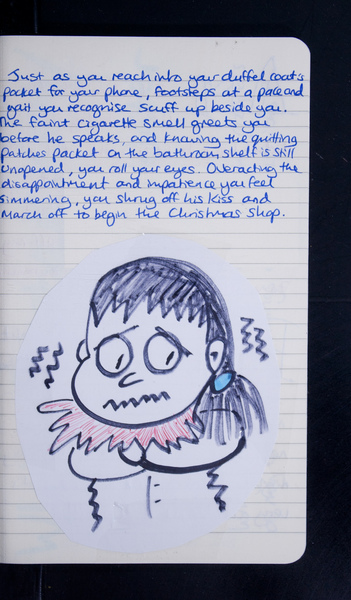 Just as you reach into your duffel coat's
pocket for your phone, footsteps at a pace and
gait you recognise scuff up beside you.
The faint cigarette smell greets you
before he speaks, and knowing the quitting
patches packet on the bathroom shelf is still
unopened, you roll your eyes. Overacting the
disappointment and impatience you feel
simmering, you shrug off his kiss and
march off to begin the Christmas shop.